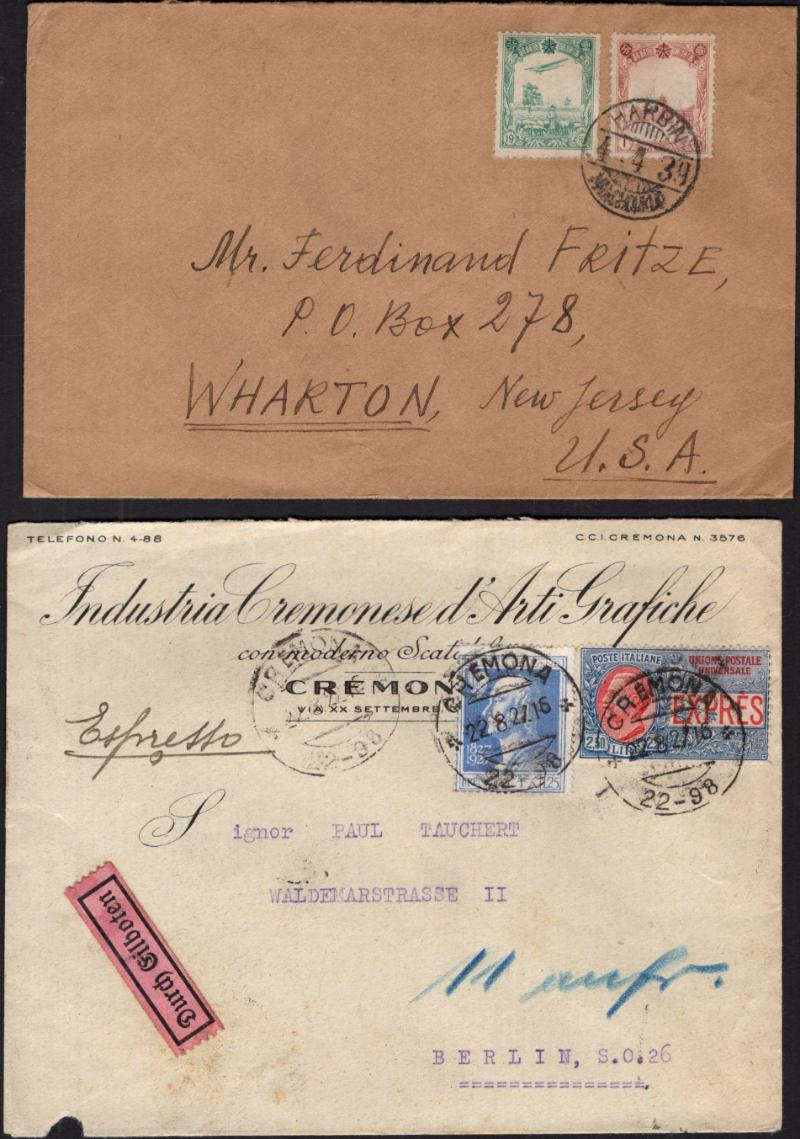 19
HARBIN
4.4.39
Mr. Ferdinand FRITZE,
P.O. Box 278,
WHARTON, New Jersey
U.S.A.
TELEFONO N. 4-88
C.C.I. CREMONA N. 3576
Industria Cremonese d'Arti Grafiche
con moderno
CREMON
VIA XX SETTEMBRE
CREMONA
22-98
CREMONA
22.8.27.16
22-98
1827
1927
POSTE ITALIANE
UNIONE POSTALE
UNIVERSALE
EXPRÈS
LIRE
CREMONA
22.8.27.16
22-98
Espresso
Signor PAUL TAUCHERT
WALDEMARSTRASSE II
Durch Eilboten
11 anfr.
BERLIN, S.O.26